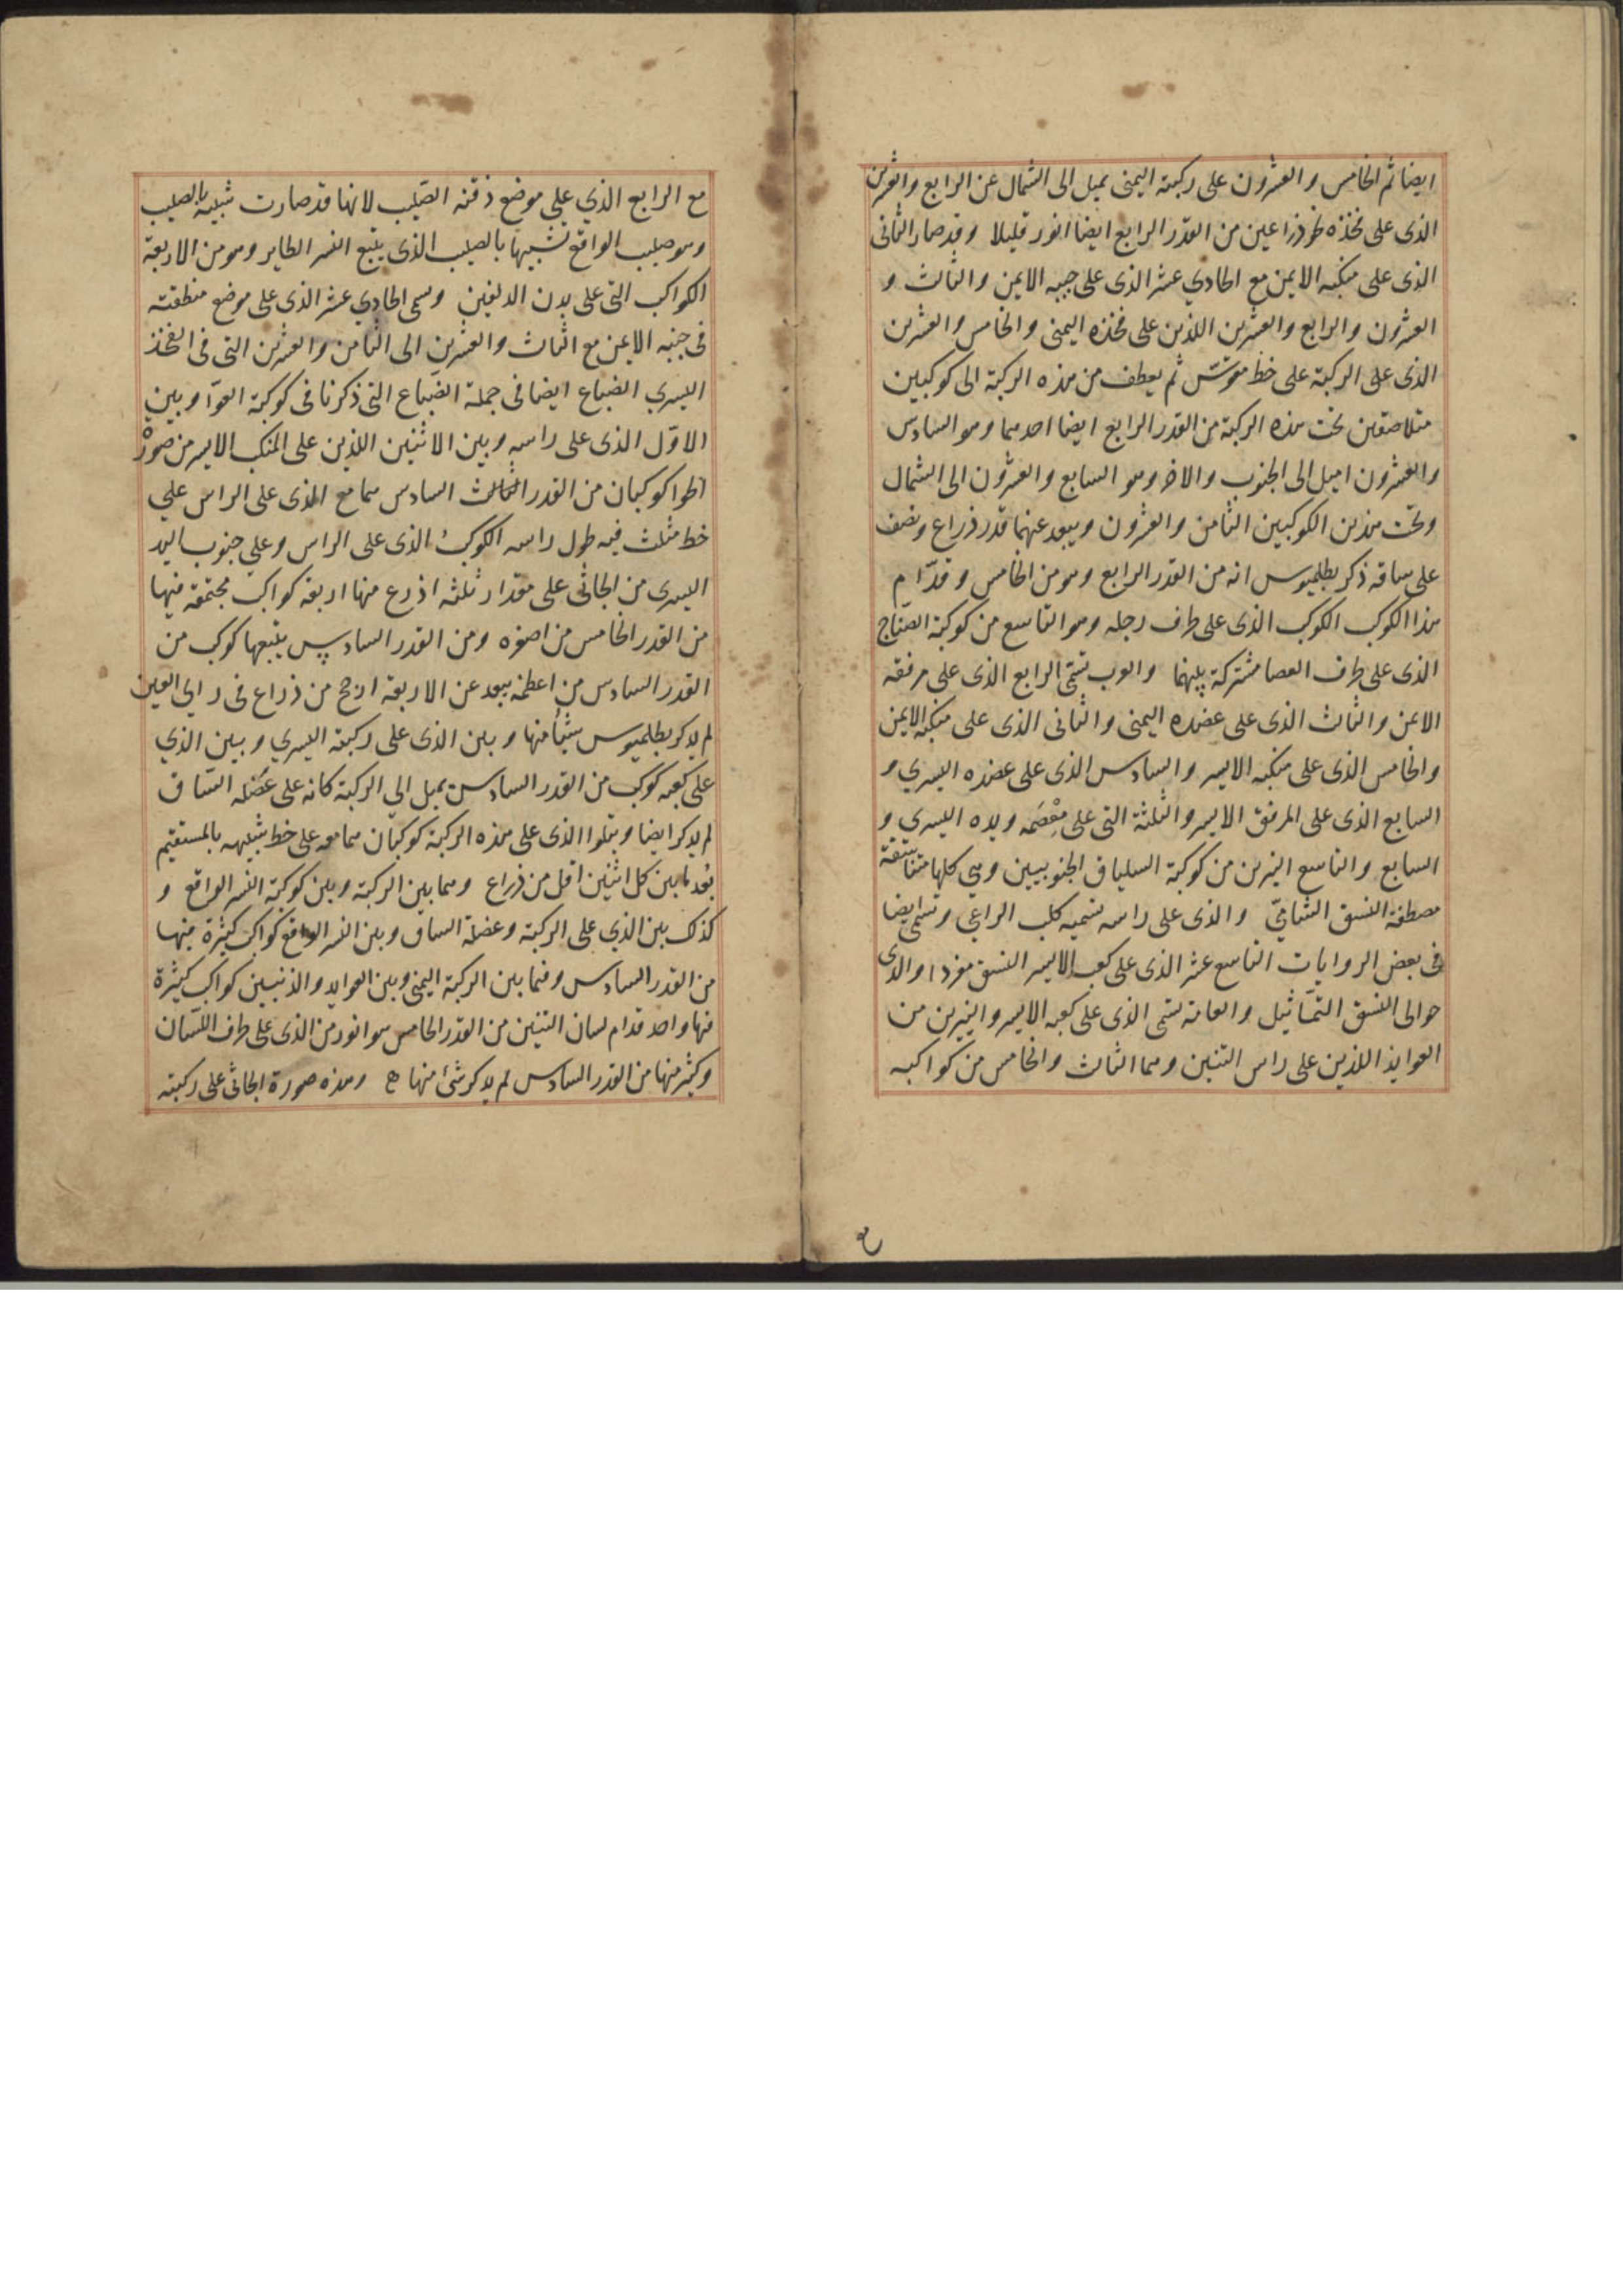 ايضا ثم الخامس والعشرون على ركبته اليمنى يميل الى الشمال عن الرابع والعشرين
الذى على فخذه نحو ذراعين من القدر الرابع ايضا انور قليلا وقد صار الثانى
الذى على منكبه الايمن مع الحادي عشر الذى على جنبه الايمن والثالث و
العشرون والرابع والعشرين اللذين على فخذه اليمنى والخامس والعشرين
الذى على الركبة على خط مقوس ثم يعطف من هذه الركبة الى كوكبين
متلاصقين تحت هذه الركبة من القدر الرابع ايضا احدهما وهو السادس
والعشرون اميل الى الجنوب والاخر وهو السابع والعشرون الى الشمال
وتحت هذين الكوكبين الثامن والعشرون ويبعد عنهما قدر ذراع ونصف
على ساقه ذكر بطلميوس انه من القدر الرابع وهو من الخامس وقدّام
هذا الكوكب الكوكب الذى على طرف رجله وهو التاسع من كوكبة الصيّاح
الذى على طرف العصا مشتركة بينهما والعرب تسمّى الرابع الذى على مرفقه
الايمن والثالث الذى على عضده اليمنى والثانى الذى على منكبه الايمن
والخامس الذى على منكبه الايسر والسادس الذى على عضده اليسري و
السابع الذى على المرفق الايسر والثلثة التى على مِعْصَمه ويده اليسري و
السابع والتاسع النيرين من كوكبة السلياق الجنوبيين وهي كلها متناسقة
مصطفة النسق الشاميّ والذى على راسه تسميه كلب الراعي وتسمى ايضا
فى بعض الروايات التاسع عشر الذى على كعبه الايسر النسق مفردا والذى
حوالى النسق التّماثيل والعامة تسمى الذى على كعبه الايسر والنيرين من
العوايذ اللذين على راس التنين وهما الثالث والخامس من كواكبه
مع الرابع الذي على موضع ذقنه الصّليب لانها قد صارت شبيه بالصليب
وهو صليب الواقع تشبيها بالصليب الذى يتبع النسر الطاير وهو من الاربعة
الكواكب التى على بدن الدلفين وسمى الحادي عشر الذى على موضع منطقته
فى جنبه الايمن مع الثالث والعشرين الى الثامن والعشرين التى فى الفخذ
اليسري الضباع ايضا فى جملة الضّباع التى ذكرنا فى كوكبة العوّا وبين
الاوّل الذى على راسه وبين الاثنين اللذين على المنكب الايسر من صورة
الحوا كوكبان من القدر الثالث السادس هما مع الذى على الراس علي
خط مثلث فيه طول راسه الكوكب الذى على الراس وعلى جنوب اليد
اليسرى من الجاثى على مقدار ثلثه اذرع منها اربعة كواكب مجتمعه منها
من القدر الخامس من اصغره ومن القدر السادس يتبعها كوكب من
القدر السادس من اعظمه يبعد عن الاربعة ارجح من ذراع فى راي العين
لم يذكر بطلميوس شيأ منها وبين الذى على ركبته اليسري وبين الذي
على كعبه كوكب من القدر السادس يميل الي الركبة كانه على عَضَله السّاق
لم يذكر ايضا ويتلوا الذى على هذه الركبة كوكبان هما معه على خط شبيه بالمستقيم
بُعد ما بين كل اثنين اقل من ذراع وهما بين الركبة وبين كوكبة النسر الواقع و
كذلك بين الذي على الركبة وعضلة الساق وبين النسر الواقع كواكب كثيرة منها
من القدر السادس وفيما بين الركبة اليمنى وبين العوايد والذئبين كواكب كثيرة
منها واحد قدام لسان التنين من القدر الخامس هو انور من الذى على طرف اللّسان
وكثير منها من القدر السادس لم يذكر شئ منها ه وهذه صورة الجاثى على ركبته